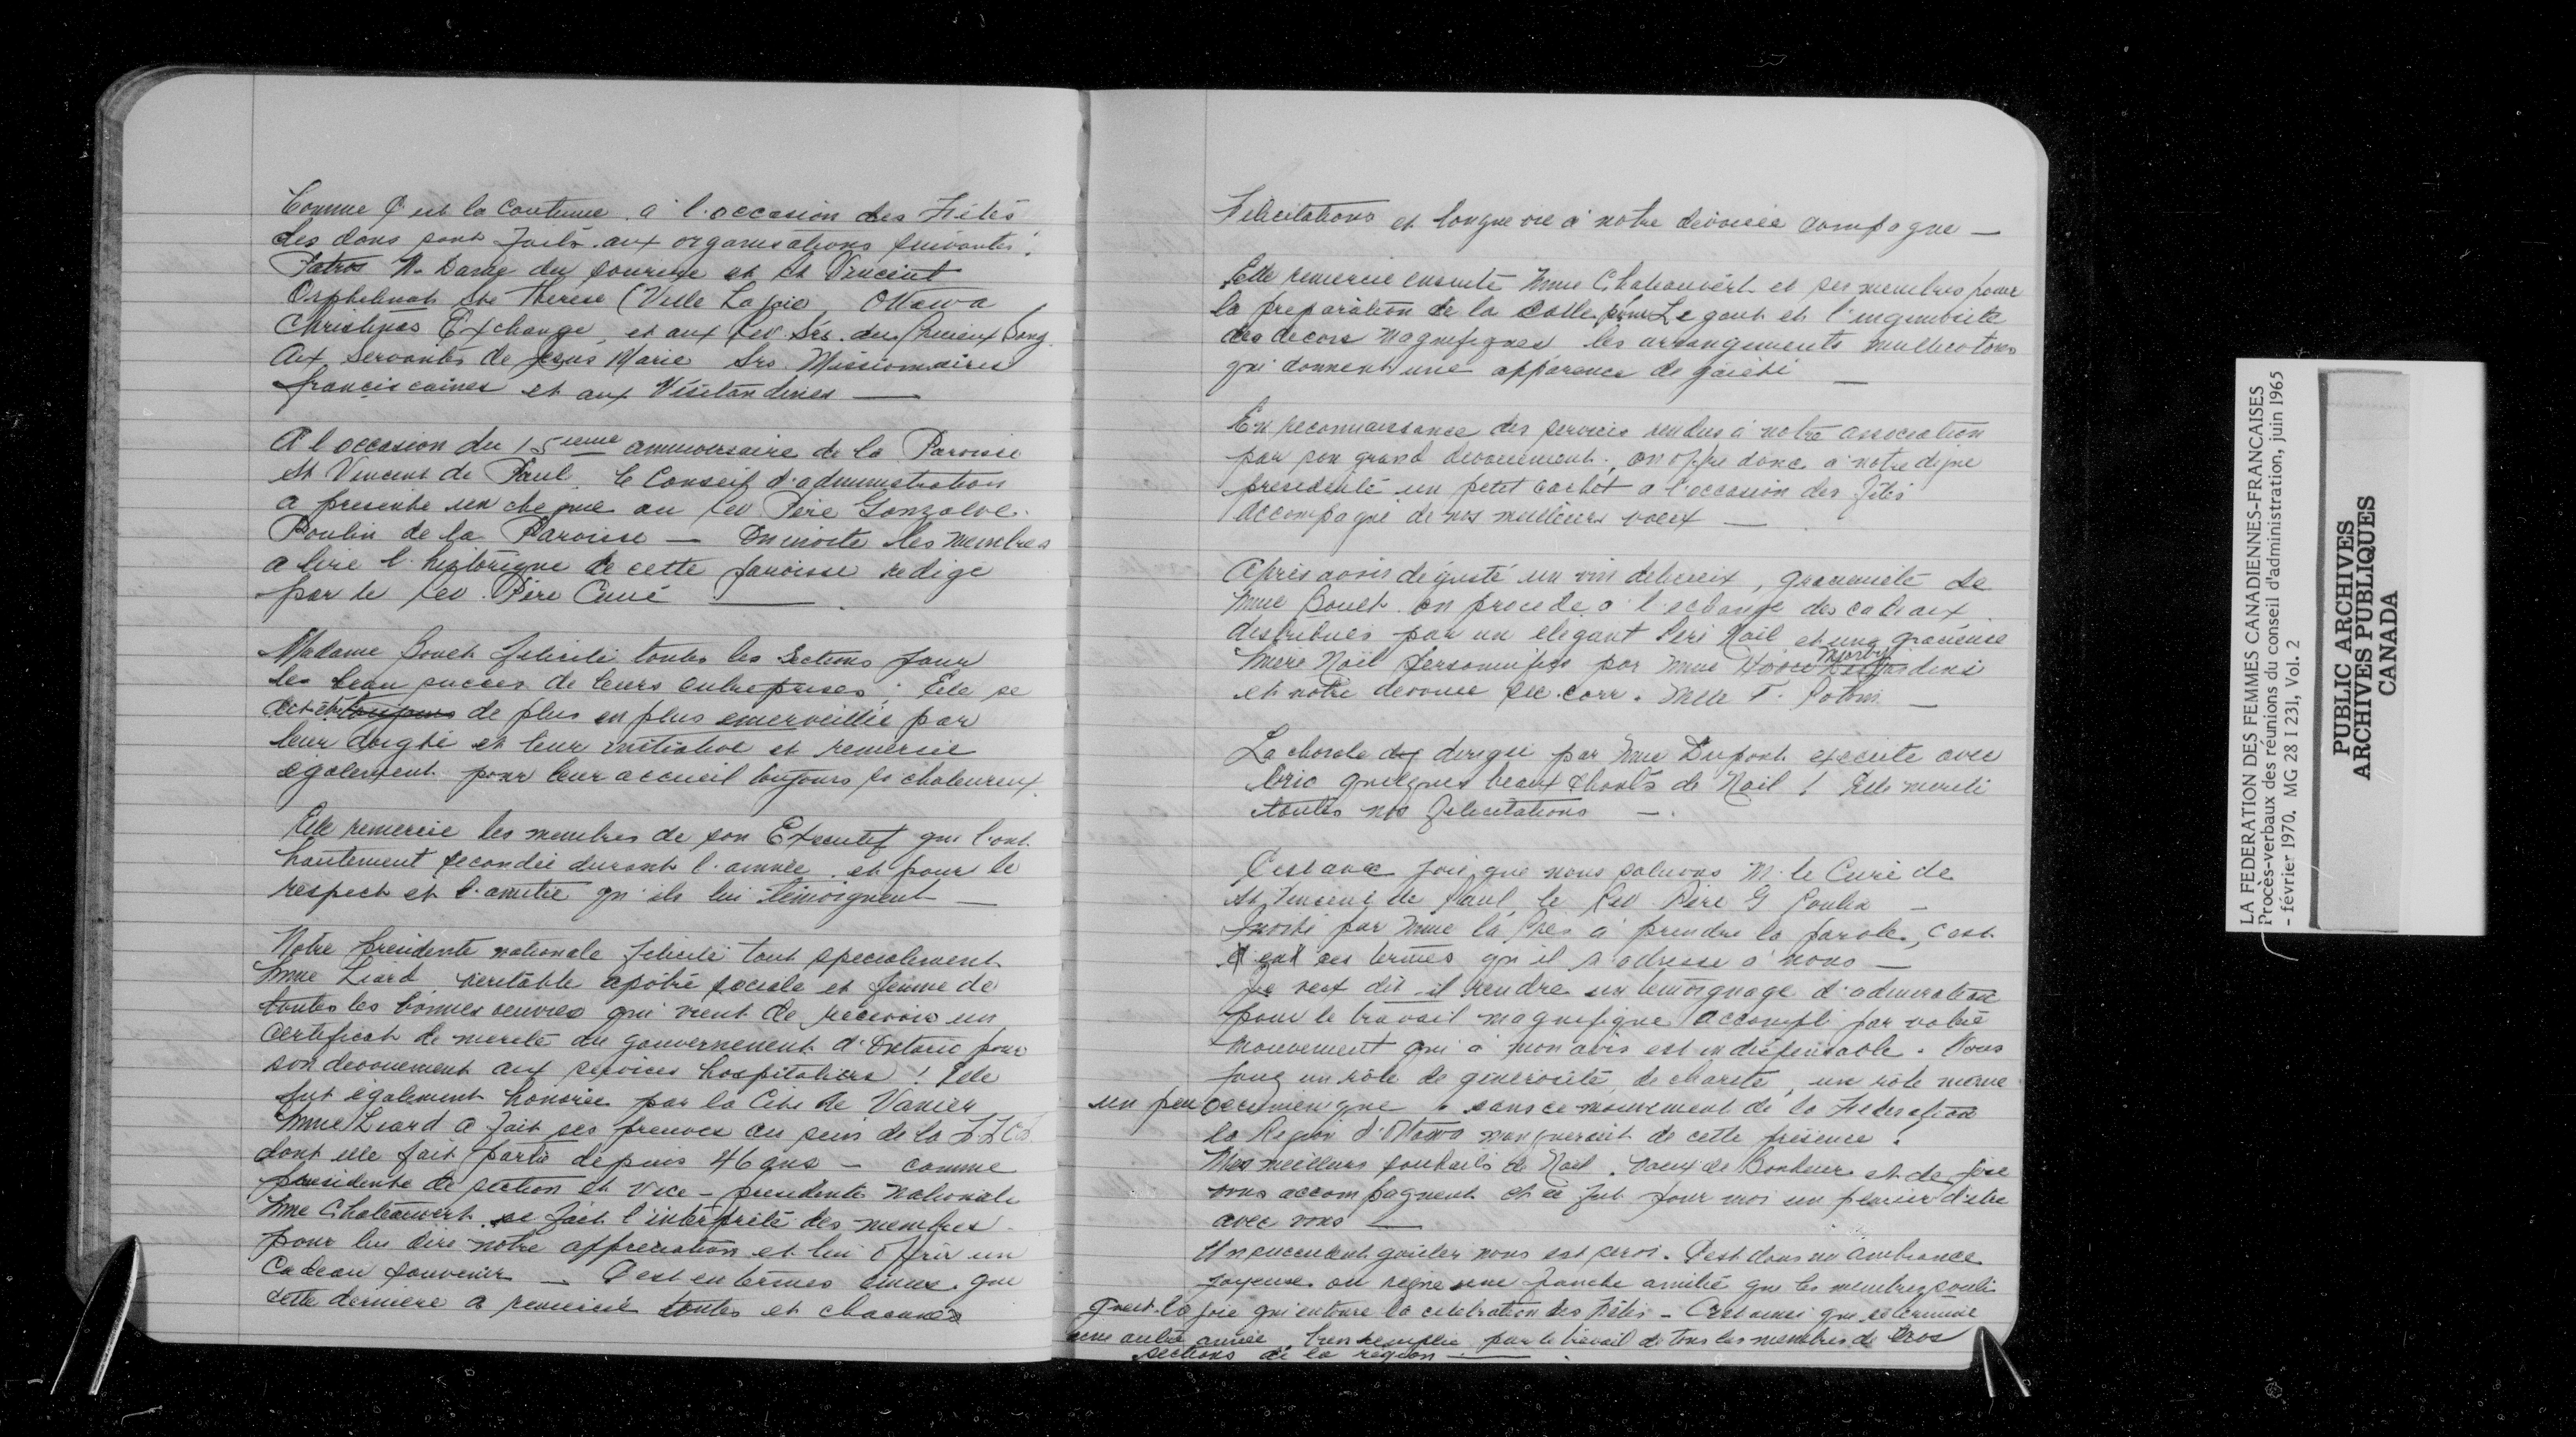 Comme c'est la coutume à l'occasion des Fêtes
des dons sont faits aux organisations suivantes:
Patros N. Dame du sourire et St Vincent
Orphelinat Ste Therese (Ville La Joie Ottawa
Christmas Exchange, et aux Rev. Srs. du Precieux Sang
Aux Servantes de Jesus Marie Srs. Missionnaires
franciscaines et aux Visitandines —
A l'occasion du 15ieme anniversaire de la Paroisse
St Vincent de Paul. le Conseil d'administration
a presenté un cheque au Rev Père Gonzalve
Poulin de la Paroisse — On invite les membres
a lire l'historique de cette paroisse redige
par le Rev. Père Curé —
Madame Bouch félicite toutes les Sections pour
les beau succes de leurs entreprises; Elle se
dit être toujours de plus en plus emerveillée par
leur doigté et leur initiative et remercie
egalement pour leur accueil toujours si chaleureux.
Elle remercie les membres de son Executif qui l'ont
hautement secondée durant l'année et pour le
respect et l'amitie qu'ils lui témoignent —
Notre presidente nationale felicite tout specialement
Mme Liard veritable apôtre sociale et femme de
toutes les bonnes oeuvres qui vient de recevoir un
Certificat de merite du gouvernement d'Ontario pour
son devouement aux services hospitaliers! Elle
fut également honorée par la Cité de Vanier
Mme Liard a fait ses preuves au sein de la
dont elle fait partie depuis 46 ans — comme
presidente de section et vice-presidente nationale
Mme Chateauvert se fait l'interprète des membres
pour lui dire notre appreciation et lui offrir un
Cadeau souvenir — C'est en termes émus que
cette derniere a remercié toutes et chacunes
Felicitations et longue vie à notre devouée compagne —
Elle remercie ensuite Mme Chateauvert et ses membres pour
la preparation de la salle pour Le gout et l'ingeniosité
des decors magnifiques les arrangements multicolores
qui donnent une apparence de gaieté —
En reconnaissance des services rendus à notre association
par son grand devouement, on offre donc à notre digne
presidente un petit cachet a l'occasion des Fêtes
accompagné de nos meilleurs voeux —
Après avoir degusté un vin delicieux, gracieuseté de
Mme Bouch on procede a l'echange des cadeaux
distribués par un elegant Père Noël et une gracieuse
Mère Noël personnifiés par Mme
et notre devouee sec. corr. Melle F. Potvin —
La chorale dirigée par Mme Dupont execute avec
brio quelques beaux chants de Noël! Elle merite
toutes nos felicitations —.
C'est avec joie que nous saluons M. le Curé de
St Vincent de Paul, le Rev Père G Poulin —
Invité par Mme la Pres à prendre la parole, c'est
en ces termes qu'il s'adresse à nous —
Je veux dit-il rendre un temoignage d'admiration
pour le travail magnifique accompli par votre
mouvement qui à mon avis est indispensable. Vous
un rôle de générosité, de charité, un rôle meme
un peu oecumenique. sans ce mouvement de la Federation
la Region d'Ottawa manquerait de cette présence.
Mes meilleurs souhaits de Noël. voeux de Bonheur et de joie
vous accompagnent et ce fut pour moi un plaisir d'etre
avec vous —
Un succulent goûter nous est servi. C'est dans une ambiance
joyeuse ou regne une franche amitié que les membres souli
gnent la joie qui entoure la celebration des Fêtes — C'est ainsi que se termine
une autre année bien remplie par le travail de tous les membres de nos
sections de la région —.
LA FEDERATION DES FEMMES CANADIENNES-FRANCAISES
Procès-verbaux des réunions du conseil d'administration, juin 1965
- février 1970. MG 28 I 231, Vol. 2
PUBLIC ARCHIVES
ARCHIVES PUBLIQUES
CANADA